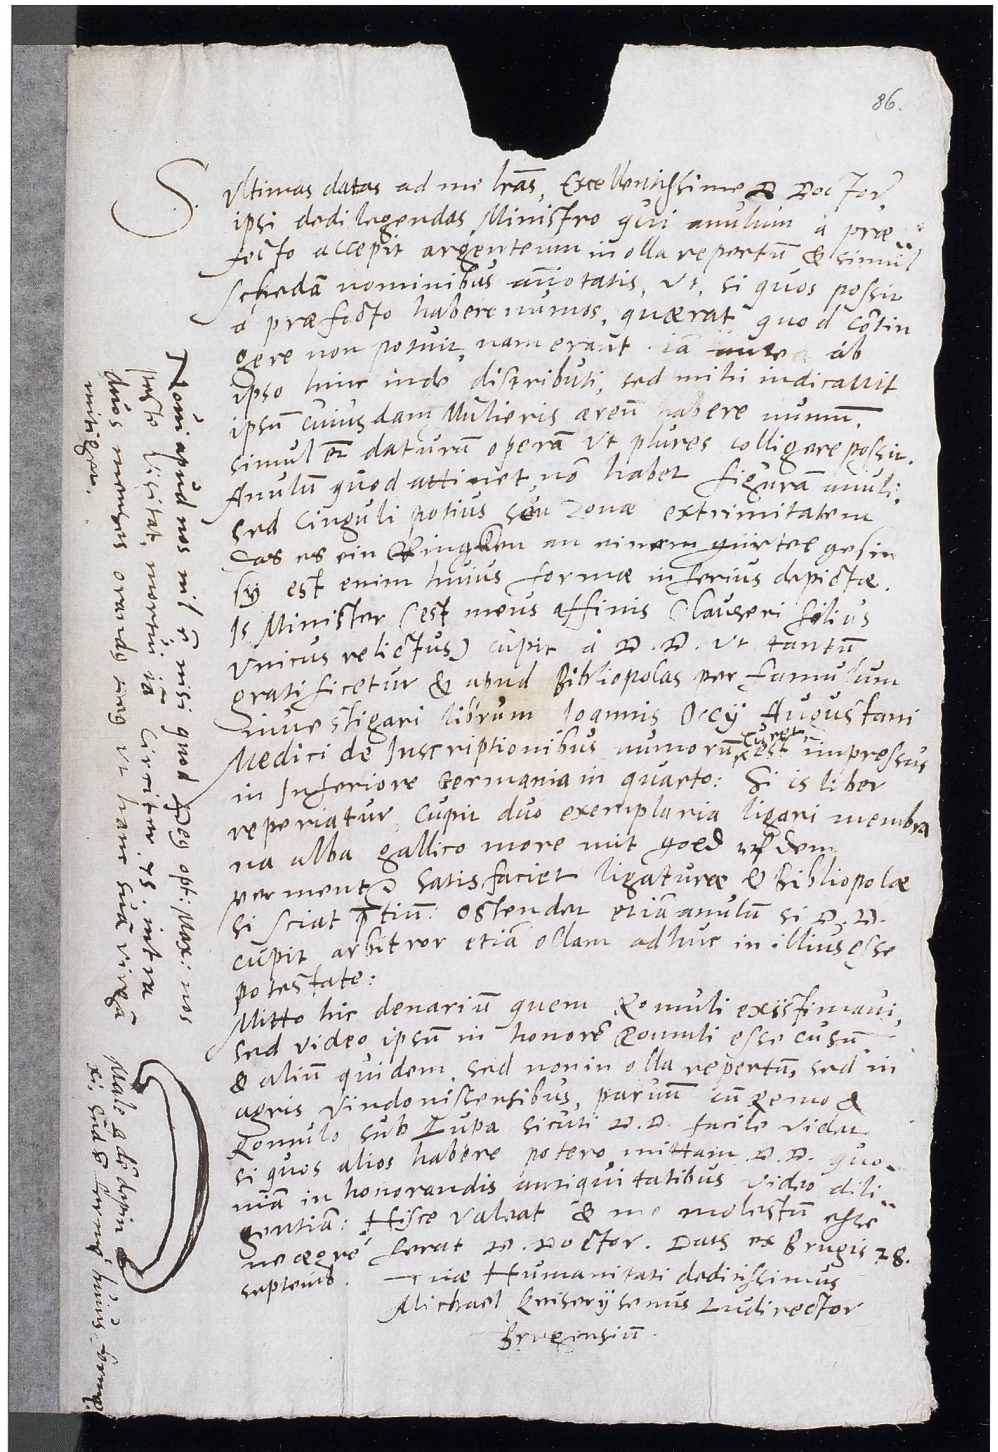 86.
S. Vltimas datas ad me lr̃as, Excellentissime D Doctor
ipsi dedi legendas Ministro qui anulum à præ
fecto accepit argenteum in olla repertũ & simul
schedã nominibus añotatis, Vt, si quos possit
à præfecto habere numos, quærat quod cõtin
gere non potuit, nam erant iã ab
ipso hinc inde distributi, sed mihi indicavit
ipsũ cuiusdam Mulieris æreũ habere numũ.
simul daturũ operã Vt plures colligere possit.
Anulũ quod attinet, nõ habet figuram anuli,
sed Cinguli potius seu Zonæ extrimitatem
das es ein Ringken an einem gürtel gesin
sÿ est enim huius formæ inferius depictæ.
Is Minister (est meus affinis Clauseri filius
Vnicus relictus) cupit à D. D. Vt tantũ
gratificetur & apud Bibliopolas per famulum
inuestigari librum Ioannis Occÿ Augustani
Medici de Inscriptionibus numorũ, curet est impressus
in Inferiore Germania in quarto: Si is liber
reperiatur, Cupit duo exemplaria ligari membra
na alba gallico more mit gold uf dem
perment Satisfaciet ligaturæ & Bibliopolæ
si sciat p̃tiũ: ostendet etiã anulũ si D. D.
cupit, arbitror etiã ollam adhuc in illius esse
potestate:
Mitto hic denariũ quem Romuli existimaui,
sed video ipsũ in honorẽ Romuli esse cusũ
& aliũ quidem, sed non in olla repertũ, sed in
agris Vindonissensibus, paruũ cũ Remo &
Romulo sub Lupa sicuti D. D. facile videt
si quos alios habere potero mittam D. D. quo-
niã in honorandis antiquitatibus video dili
gentiã: Hisce valeat & me molestũ esse
ne ægrè ferat D. Doctor. Dat̃s ex Brugis 28.
Septemb.
Tuæ Humanitati deditissimus
Michael Ludirector
Brugensiũ.
Noui apud nos nil ẽ nisi quod Deus opt: Max: nos
peste visitat, mortui iã circiter 75. intra
duos menses orandus vt hanc suã virgã
mitiget.
Vale